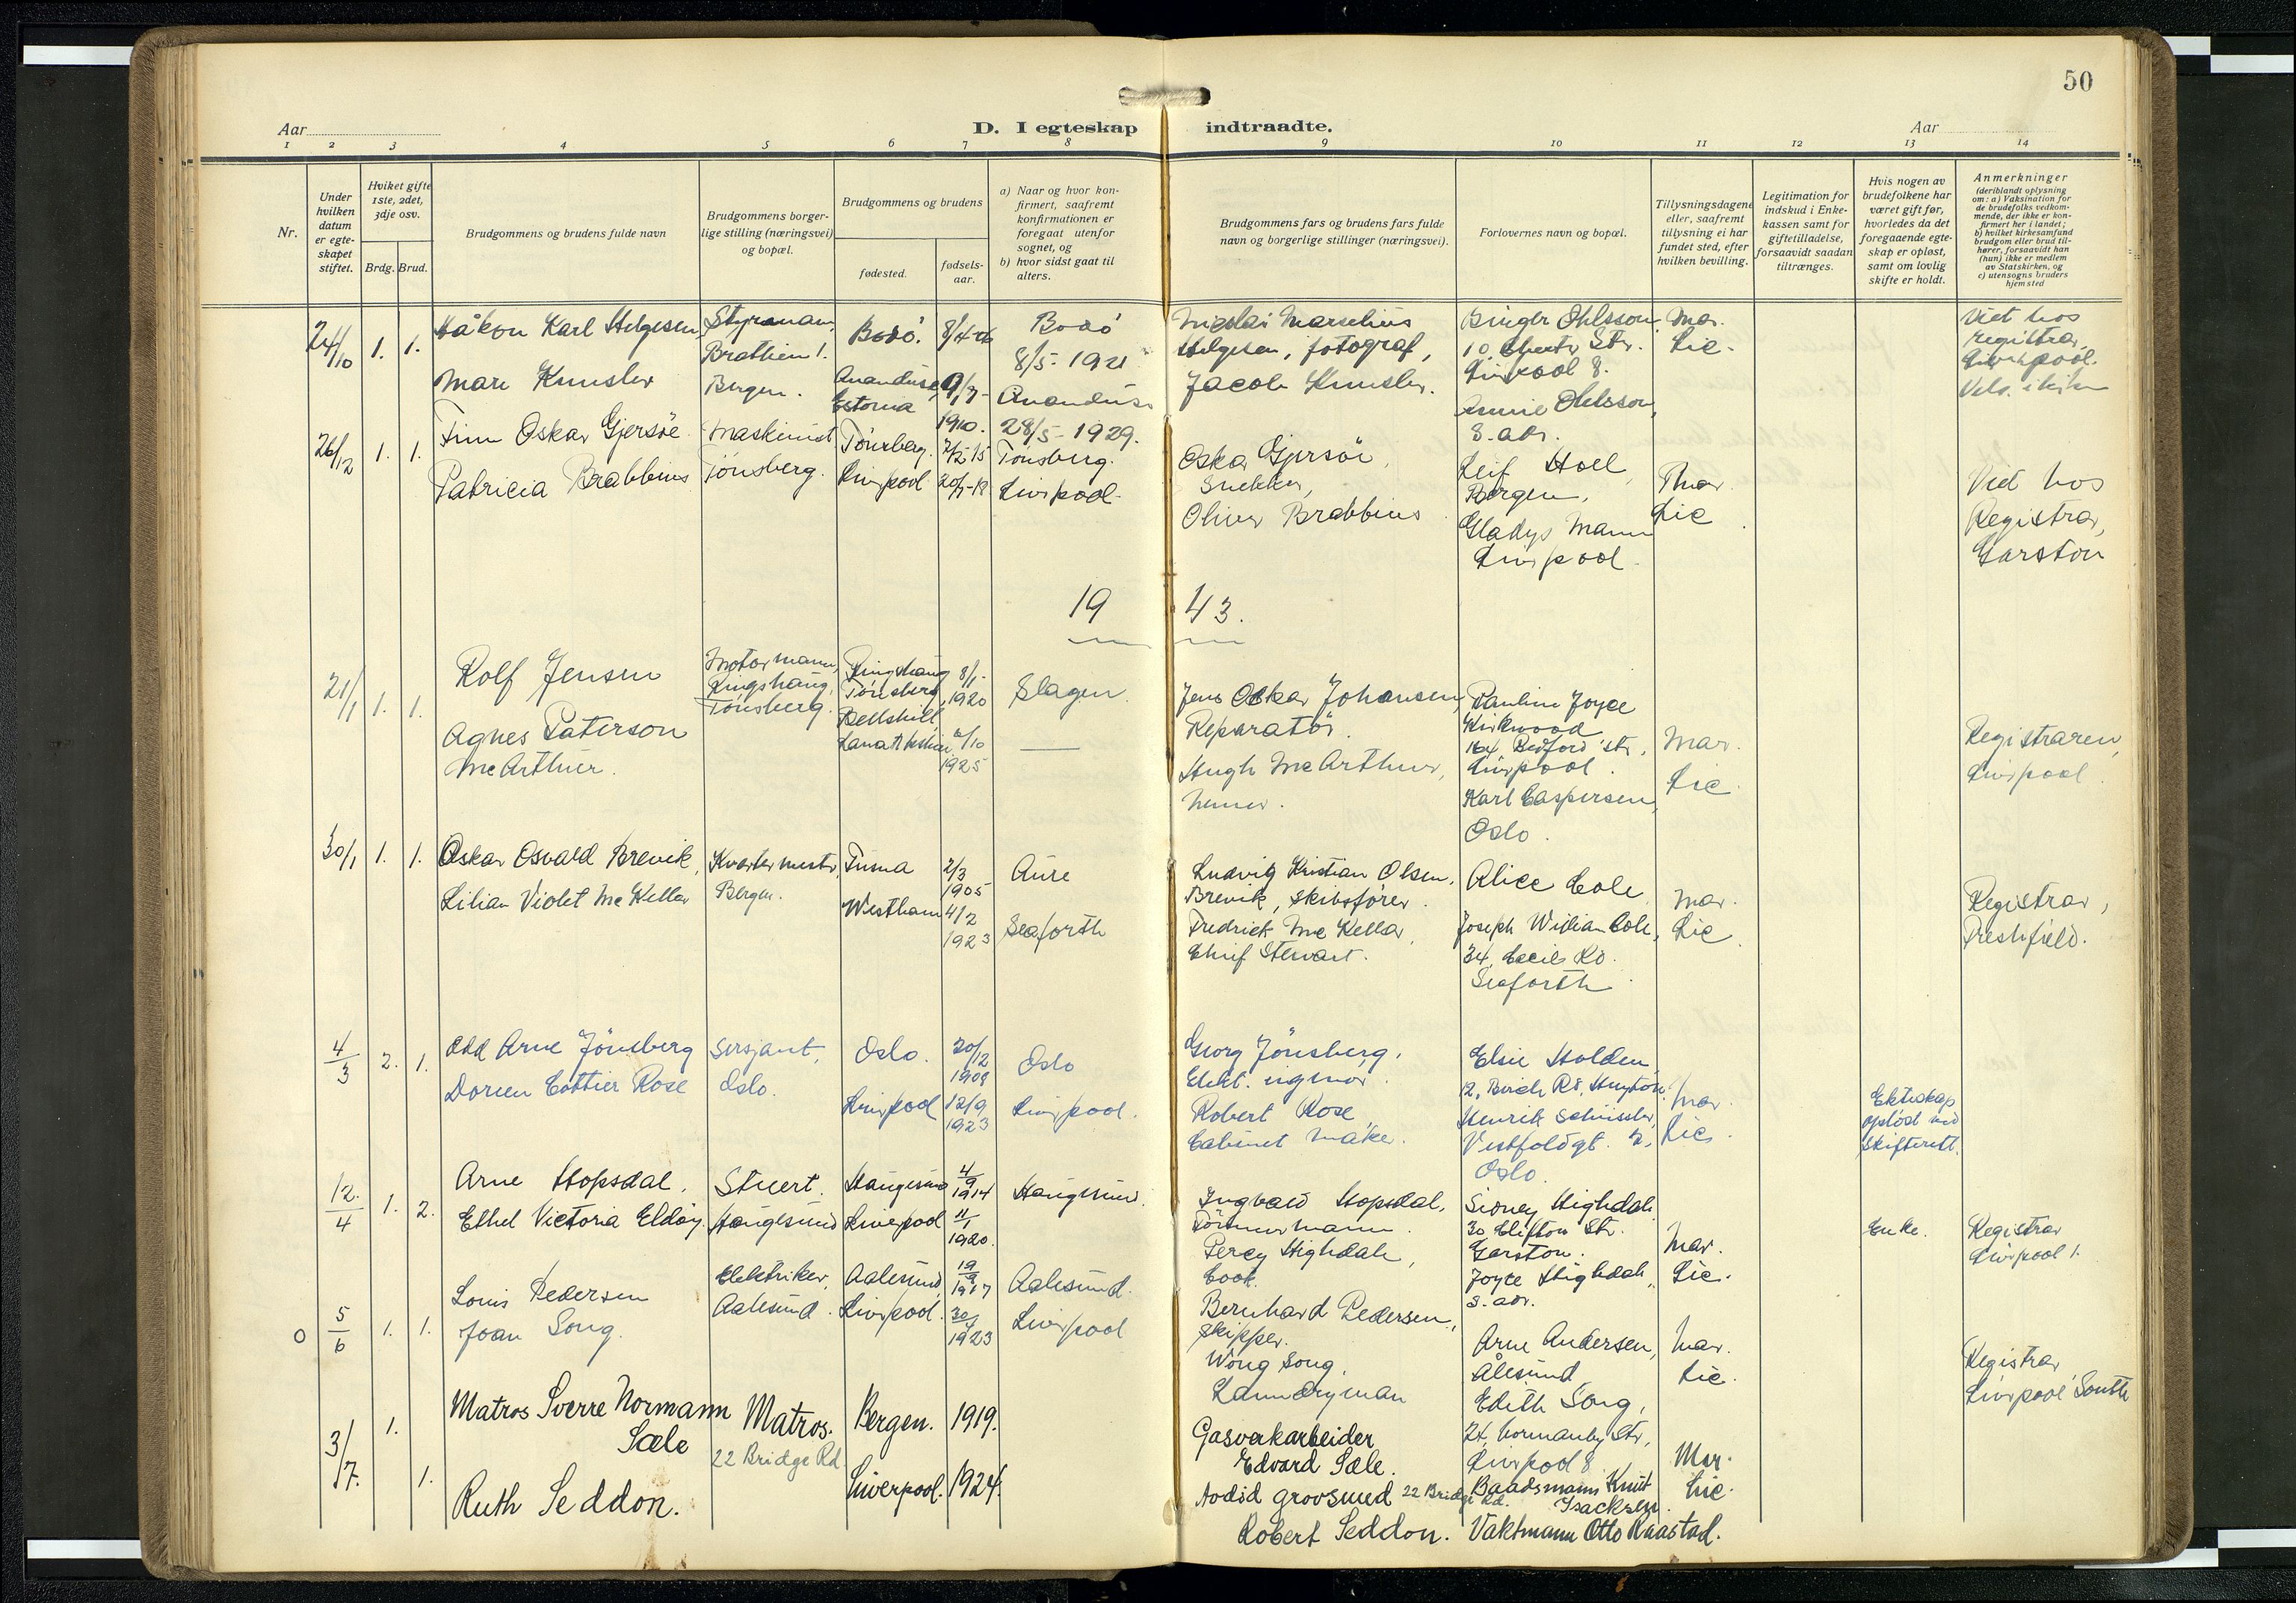 50
Aar
D. I egteskap indtraadte.
Aar
1 2 3 4 5 6 7 8 9 10 11 12 13 14
Nr.
Under hvilken datum er egteskapet stiftet.
Hviket gifte 1ste, 2det, 3dje osv.
Brdg. Brud.
Brudgommens og brudens fulde navn
Brudgommens borgerlige stilling (næringsvei) og bopæl.
Brudgommens og brudens
fødested.
fødselsaar.
a) Naar og hvor konfirmert, saafremt konfirmationen er foregaat utenfor sognet, og
b) hvor sidst gaat til alters.
Brudgommens fars og brudens fars fulde navn og borgerlige stillinger (næringsvei).
Forlovernes navn og bopæl.
Tillysningsdagene eller, saafremt tillysning ei har fundet sted, efter hvilken bevilling.
Legitimation for indskud i Enkekassen samt for giftetilladelse, forsaavidt saadan tiltrænges.
Hvis nogen av brudefolkene har været gift før, hvorledes da det foregaaende egteskap er opløst, samt om lovlig skifte er holdt.
Anmerkninger
(deriblandt oplysning om: a) Vaksination for de brudefolks vedkommende, der ikke er konfirmert her i landet;
b) hvilket kirkesamfund brudgom eller brud tilhører, forsaavidt han (hun) ikke er medlem av Statskirken, og
c) utensogns bruders hjemsted
24/10 1. 1.
Håkon Karl Helgesen
Styrmann,
Bergen.
Bodö.
Estonia
1910.
Bodö
8/5-1921
28/5-1929.
Nicolai Marselius
Helgesen, fotograf,
Birger Ohlsson
Str.
Liverpool 8.
Annie Ohlsson,
s. adr.
Mar.
Lic.
Viet hos
registrar,
Liverpool.
26/12 1. 1.
Finn Oskar Gjersöe
Patricia Brabbins
Maskinist
Tönsberg.
Tönsberg.
Liverpool
20/7-18
Tönsberg.
Liverpool.
Oskar Gjersöe,
Snekker,
Oliver Brabbins
Leif Holl
Bergen,
Gladys Mann
Liverpool
Mar.
Lic.
Viet hos
Registrar,
Garston
1943.
21/1 1. 1.
Rolf Jensen
Agnes Paterson
McArthur.
Motormann,
Ringshaug,
Tönsberg.
Ringshaug
Tönsberg
Bellshill
Lanarkshire
8/1-
1920
2/10
1925
Slagen.
—
Jens Oskar Johansen,
Reparatör.
Hugh McArthur,
Pauline Joyce
Kirkwood
164 Bedford str.,
Liverpool.
Karl Caspersen,
Oslo.
Mar.
Lic.
Registraren,
Liverpool.
30/1 1. 1.
Oskar Osvald Brevik,
Lilian Violet McKellar
Kvartermester,
Bergen.
Tusna
Westham
2/3
1905
4/2
1923
Aure
Seaforth
Ludvig Kristian Olsen,
Brevik, skibsförer.
Fredrick McKellar,
Chief Stewart.
Alice Cole
Joseph William Cole,
34, Cecil Rd.
Seaforth
Mar.
Lic.
Registrar,
Freshfield.
4/3 2. 1.
Odd Arne Jönsberg
Doreen Cottier Rose
Sersjant,
Oslo.
Oslo.
Liverpool
20/12
1908
12/9
1923
Oslo
Liverpool.
Georg Jönsberg,
Elekt. ingeniör.
Robert Rose,
Cabinet maker.
Elsie Holden,
12, Birch Rd, Huyton
Henrik Schüssler,
Vestfoldgt. 2,
Oslo.
Mar.
Lic.
Ekteskap
oplöst ved
skifterett.
12./4 1. 2.
Arne Hopsdal.
Ethel Victoria Eldöy.
Stuert.
Haugesund
Haugesund
Liverpool
4/9
1914
11/1
1920.
Haugesund.
Ingvald Hopsdal,
Tömmermann.
Percy Highdale,
Cook.
Sidney Highdale
30 Clifton Str.
Garston.
Joyce Highdale,
s. adr.
Mar.
Lic.
Enke.
Registrar
Liverpool 1.
O 5/6 1. 1.
Louis Pedersen
Joan Song.
Elektriker,
Aalesund.
Aalesund,
Liverpool.
19/9
1917
30/4
1923
Aalesund.
Liverpool
Bernhard Pedersen,
Skipper.
Wong Song,
Laundryman
Arne Andersen,
Ålesund,
Edith Song,
24, Normanby Str,
Liverpool 8.
Mar.
Lic.
Registrar
Liverpool South
3/7. 1. 1.
Matros Sverre Normann
Sæle
Ruth Seddon.
Matros.
22 Bridge Rd
Bergen.
Liverpool.
1919.
1924.
Gasverkarbeider
Edvard Sæle.
22 Bridge Rd.
Robert Seddon.
Baadsmann Knut
Isacksen.
Vaktmann Otto Raastad.
Mar.
Lic.